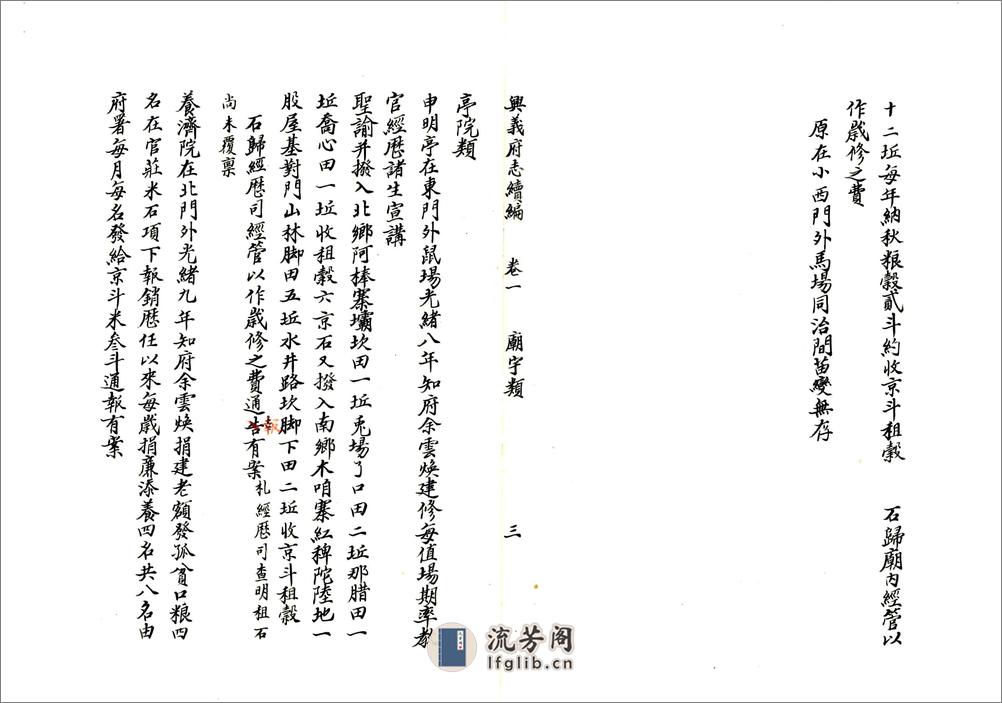 十二坵每年納秋粮穀貳斗約收京斗租穀　　石歸廟內經管以
作歲修之費
原在小西門外馬場同治間苗變無存
興義府志續編　卷一　廟宇類　三
亭院類
申明亭在東門外鼠場光緒八年知府余雲煥建修每值場期率教
官經歷諸生宣講
聖諭并撥入北鄉阿棒寨壩坎田一坵兎場了口田二坵那腊田一
坵喬心田一坵收租穀六京石又撥入南鄉木咱寨紅稗陀陸地一
股屋基對門山林脚田五坵水井路坎脚下田二坵收京斗租穀
石歸經歷司經管以作歲修之費通吿有案札經歷司查明租石
報
尚未覆稟
養濟院在北門外光緒九年知府余雲煥捐建老額發孤貧口粮四
名在官莊米石項下報銷歷任以來每歲捐廉添養四名共八名由
府署每月每名發給京斗米叁斗通報有案
流芳阁
lfglib.cn